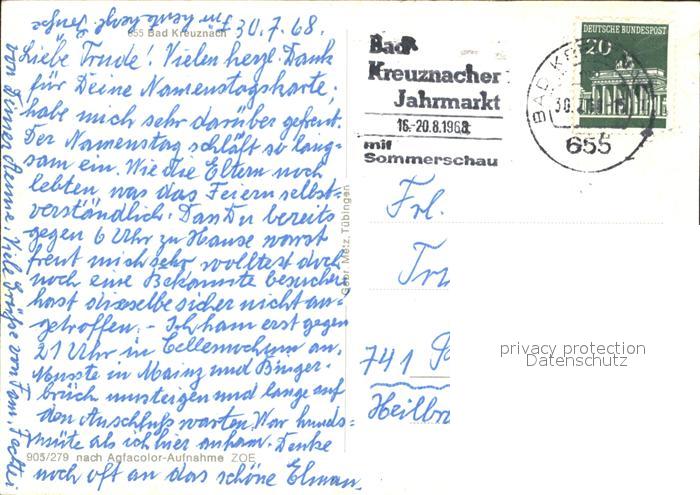 655 Bad Kreuznach
30.7.68.
Liebe Trude! Vielen herzl. Dank
für Deine Namenstagskarte,
habe mich sehr darüber gefreut.
Der Namenstag schläft so lang=
sam ein. Wie die Eltern noch
lebten, war das Feiern selbst=
verständlich. Das Du bereits
gegen 6 Uhr zu Hause warst
freut mich sehr, wolltest doch
noch eine Bekannte besuchen
hast dieselbe sicher nicht an=
getroffen. - Ich kam erst gegen
21 Uhr in an.
Musste in Mainz und Binger-
brück umsteigen und lange auf
den Anschluß warten. War hunds=
müte als ich hier ankam. Denke
noch oft an das schöne
von Deiner Viele Grüße von Fam.
905/279 nach Agfacolor-Aufnahme ZOE
Gebr. Metz, Tübingen
Bad
Kreuznacher
Jahrmarkt
16.-20.8.1968
mit
Sommerschau
DEUTSCHE BUNDESPOST
20
BAD
30.7.68
655
Frl.
741
Heilbr
privacy protection
Datenschutz